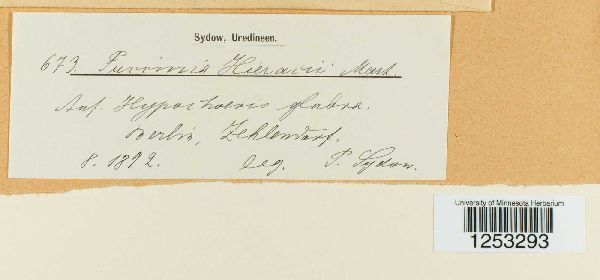 Sydow, Uredineen.
673. Puccinia Hieracii Mart.
Auf Hypochoeris glabra.
Berlin, Zehlendorf.
8. 1892. leg. P. Sydow.
University of Minnesota Herbarium
1253293